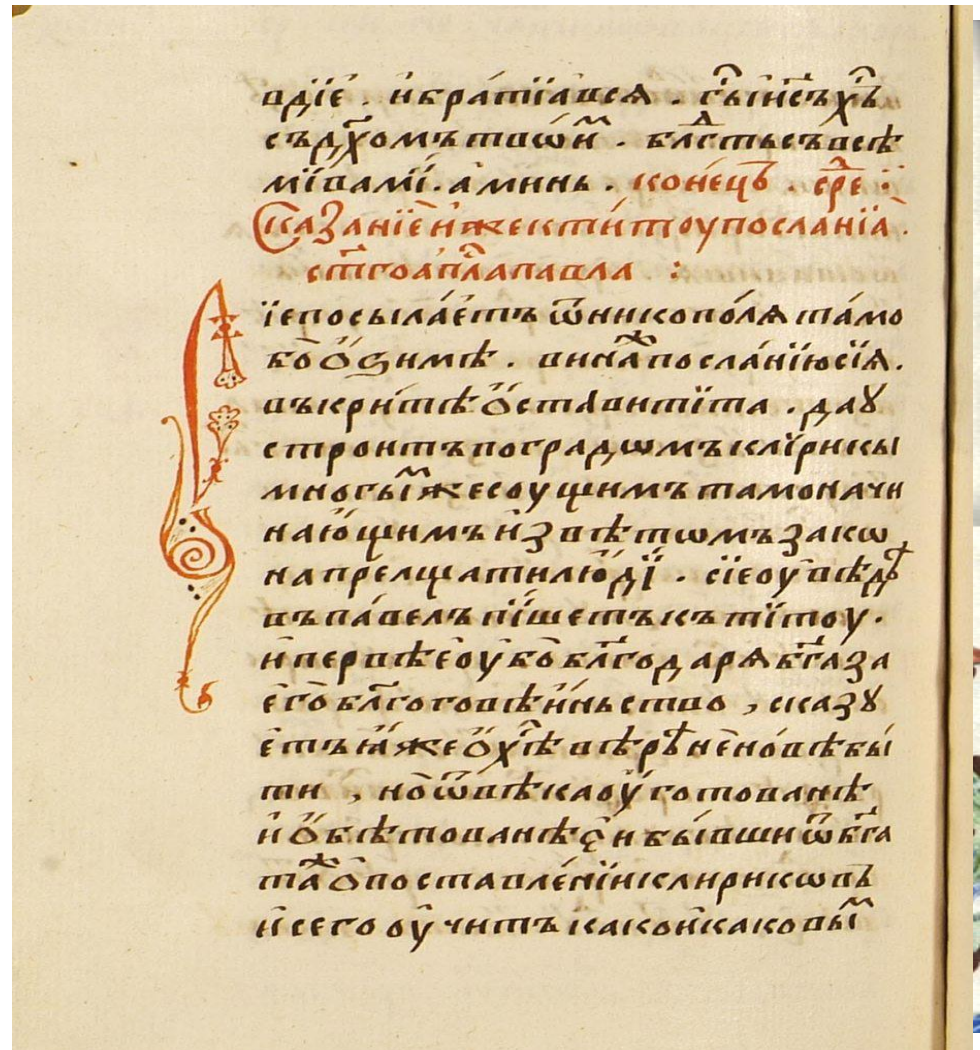 вдїе . и҆ брат́їа вся . гь і҆ис҃ъ х҃ъ
съ дх҃омъ твои̑м . бл҃гть съ всѣ
мї вамї . аминь . конецъ . сре҃ :
Сказанїе и҆же к титоу посланїа .
ст҃го ап҃ла павла :
їе посылаетъ ѿ никополя тамо
бо ѻзимѣ . вина посланїю сїя .
въ критѣ ѻстави тїта . да ꙋ
строитъ по градѡмъ клїрикы
многыї же соущимъ тамо начи
нающимъ и҆звѣтѡмъ зако
на прелщати людї . сїе оувѣдѣ
въ павелъ пїшетъ къ тїтоу .
и҆ первѣе оубо бл҃годаря бг҃а за
его бл҃гоговѣиньство , сказꙋ
етъ ꙗ҆же ѻ хс҃ѣ вѣрѣ не новѣ бы
ти , но ѿ вѣка оуготованѣ
и҆ ѻбѣтованѣ еи бывши ѿ бг҃а
та ѻ поставленїи клирикѡвъ
и҆ сего оучитъ како и҆ каковы